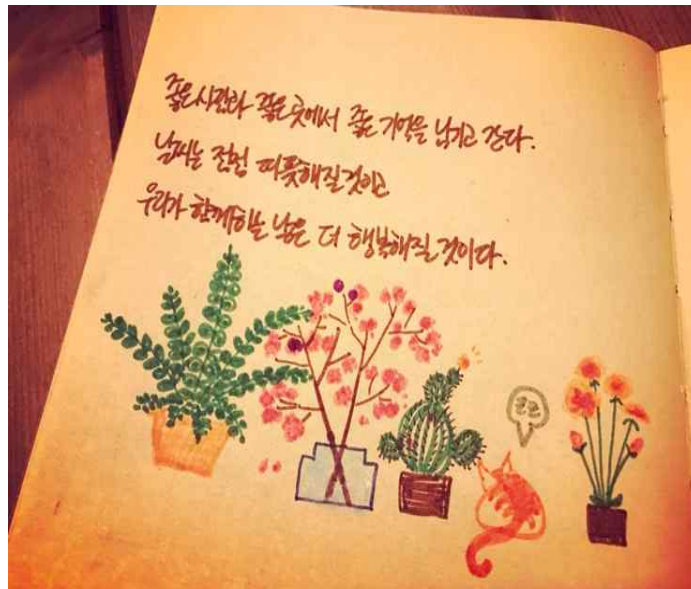 좋은 시간과 좋은 곳에서 좋은 기억을 남기고 간다.
날씨는 점점 따뜻해질 것이고
우리가 함께하는 날은 더 행복해질 것이다.